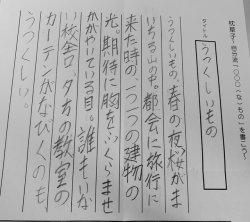 枕草子~自分流「〇〇〇(な)もの」を書こう~
タイトル
うつくしいもの
うつくしいもの、春の夜桜がま
いちる山の中。都会に旅行に
来た時の、一つ一つの建物の
光。期待に胸をふくらませ
かがやいている目。誰もいな
い校舎、夕方の教室の
カーテンがなびくのも
うつくしい。